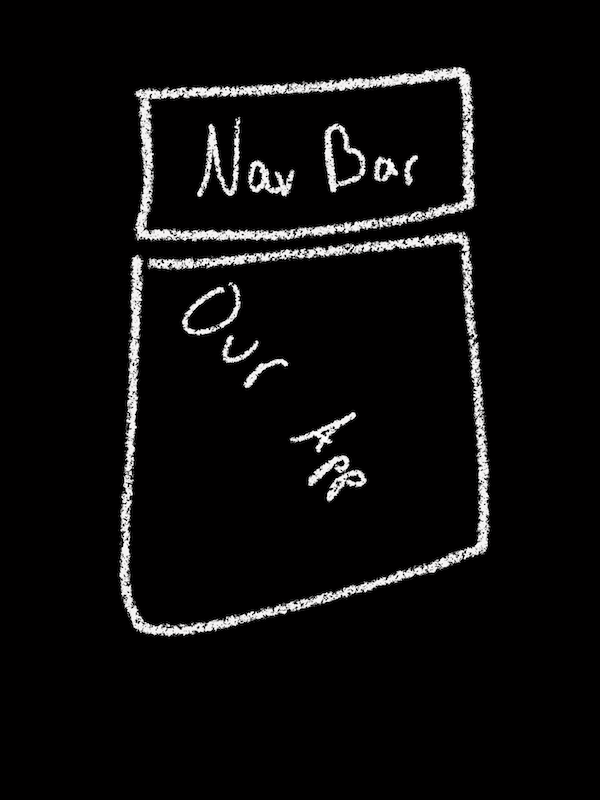 Nav Bar
Our App